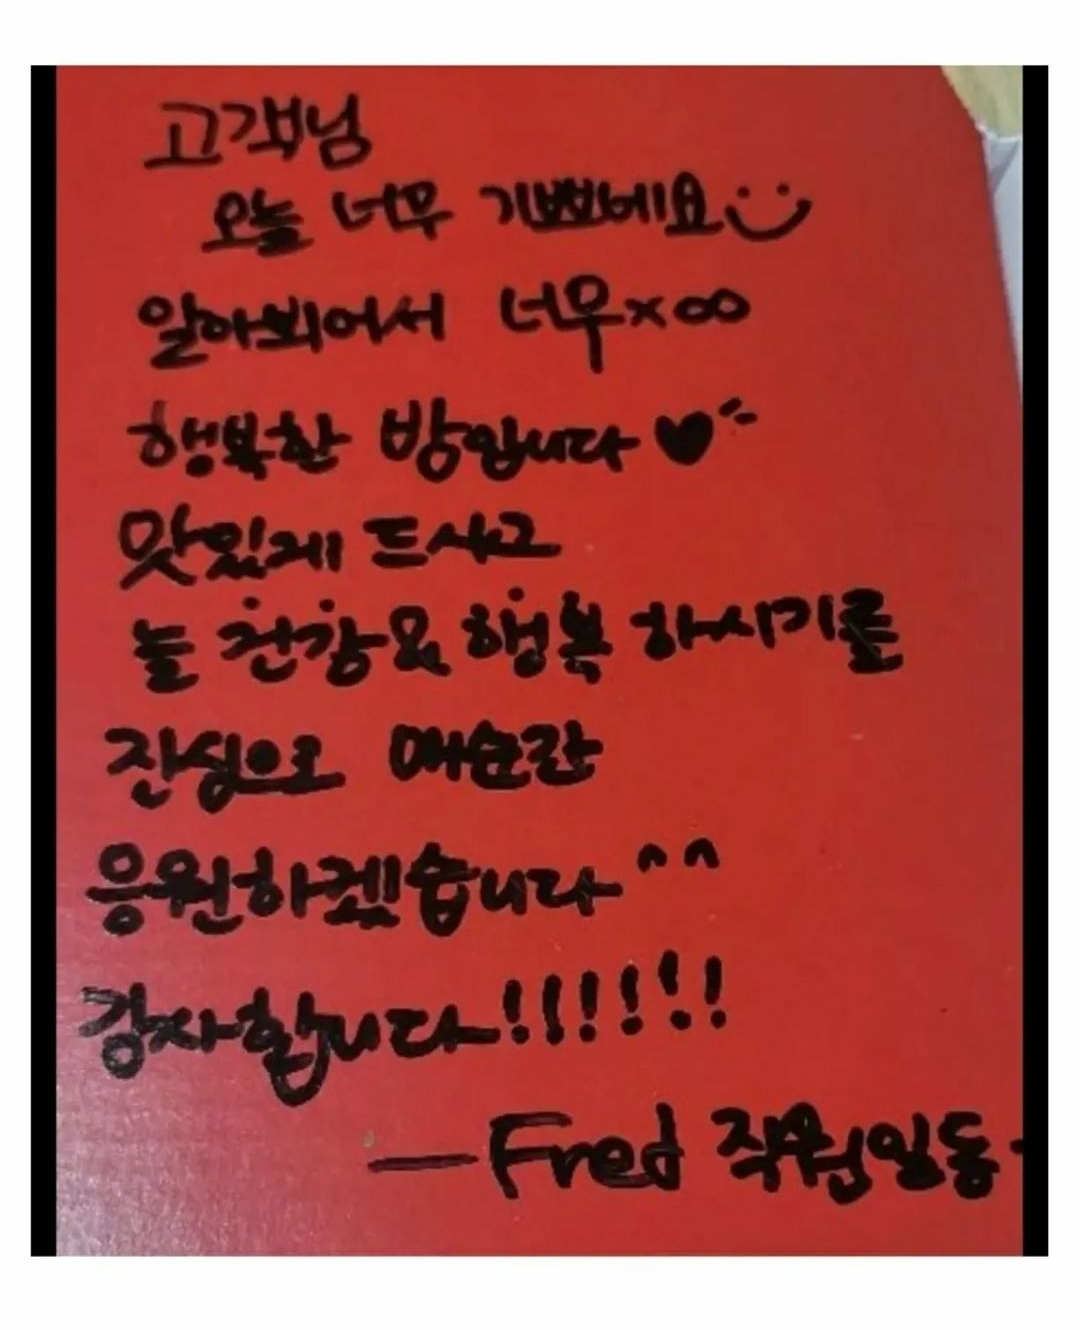 고객님
오늘 너무 기쁘네요
알아뵈어서 너무×∞
행복한 밤입니다♥
맛있게 드시고
늘 건강& 행복 하시기를
진심으로 매순간
응원하겠습니다^^
감사합니다!!!!!!
—Fred 직원일동-